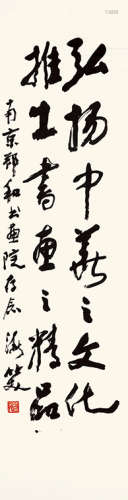 弘扬中华之文化
推出书画之精品
南京郑和书画院存念 海笑